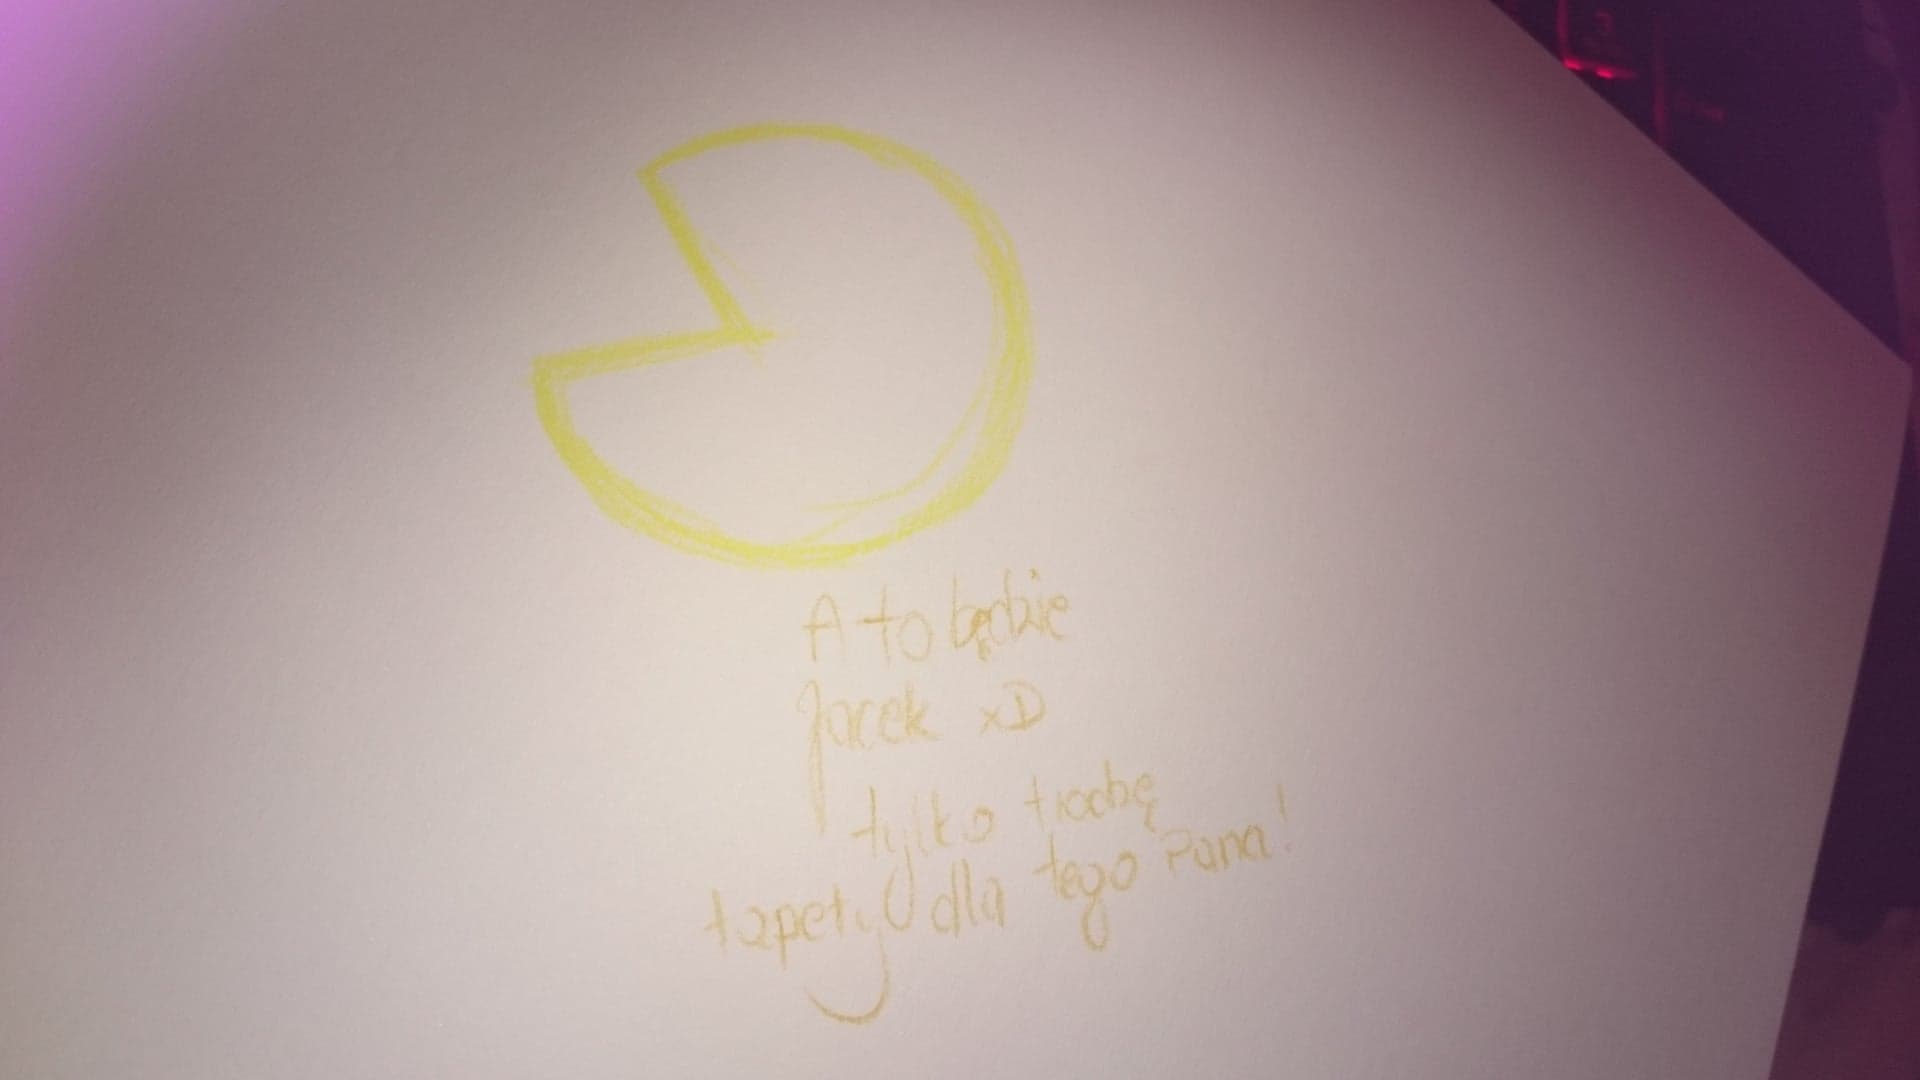 A to będzie
Jacek xD
tylko trochę
tapety dla tego Pana!